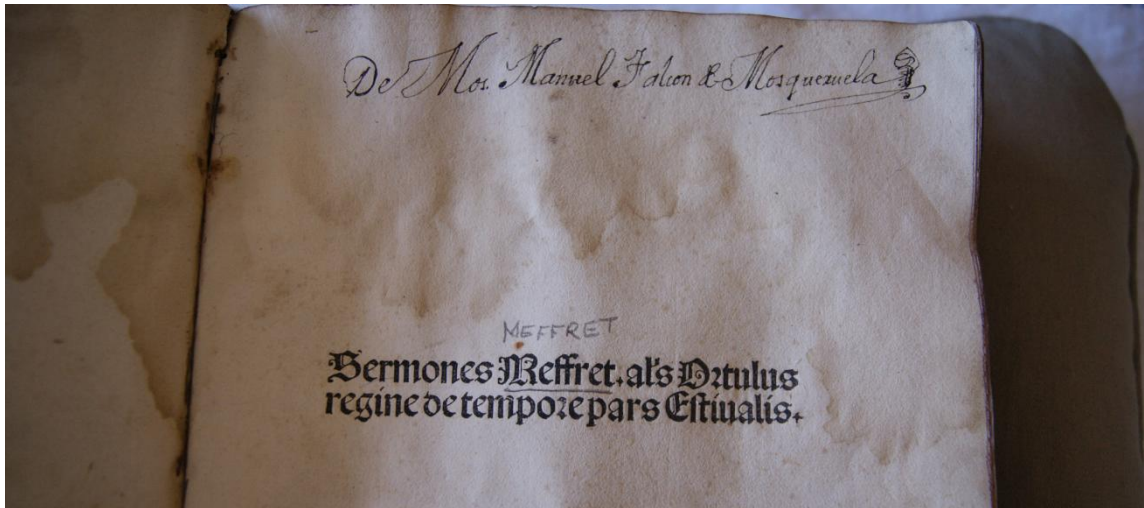 De Mos. Manuel Falcon & Mosqueruela
MEFFRET
Sermones Meffret. al's Ortulus
regine de tempore pars Estiualis.